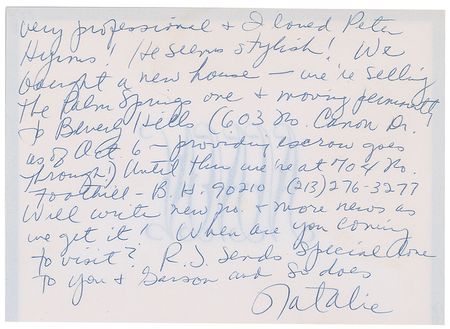 very professional + I loved Peter
Hyams! He seems stylish! We
bought a new house — we're selling
the Palm Springs one + moving permanently
to Beverly Hills (603 No. Canon Dr.
as of Oct. 6 — providing escrow goes
through!) Until then we're at 704 No.
Foothill - B.H. 90210 (213) 276-3277
Will write new no. + more news as
we get it! When are you coming
to visit? R.J. sends special love
to you & Garson and so does
Natalie